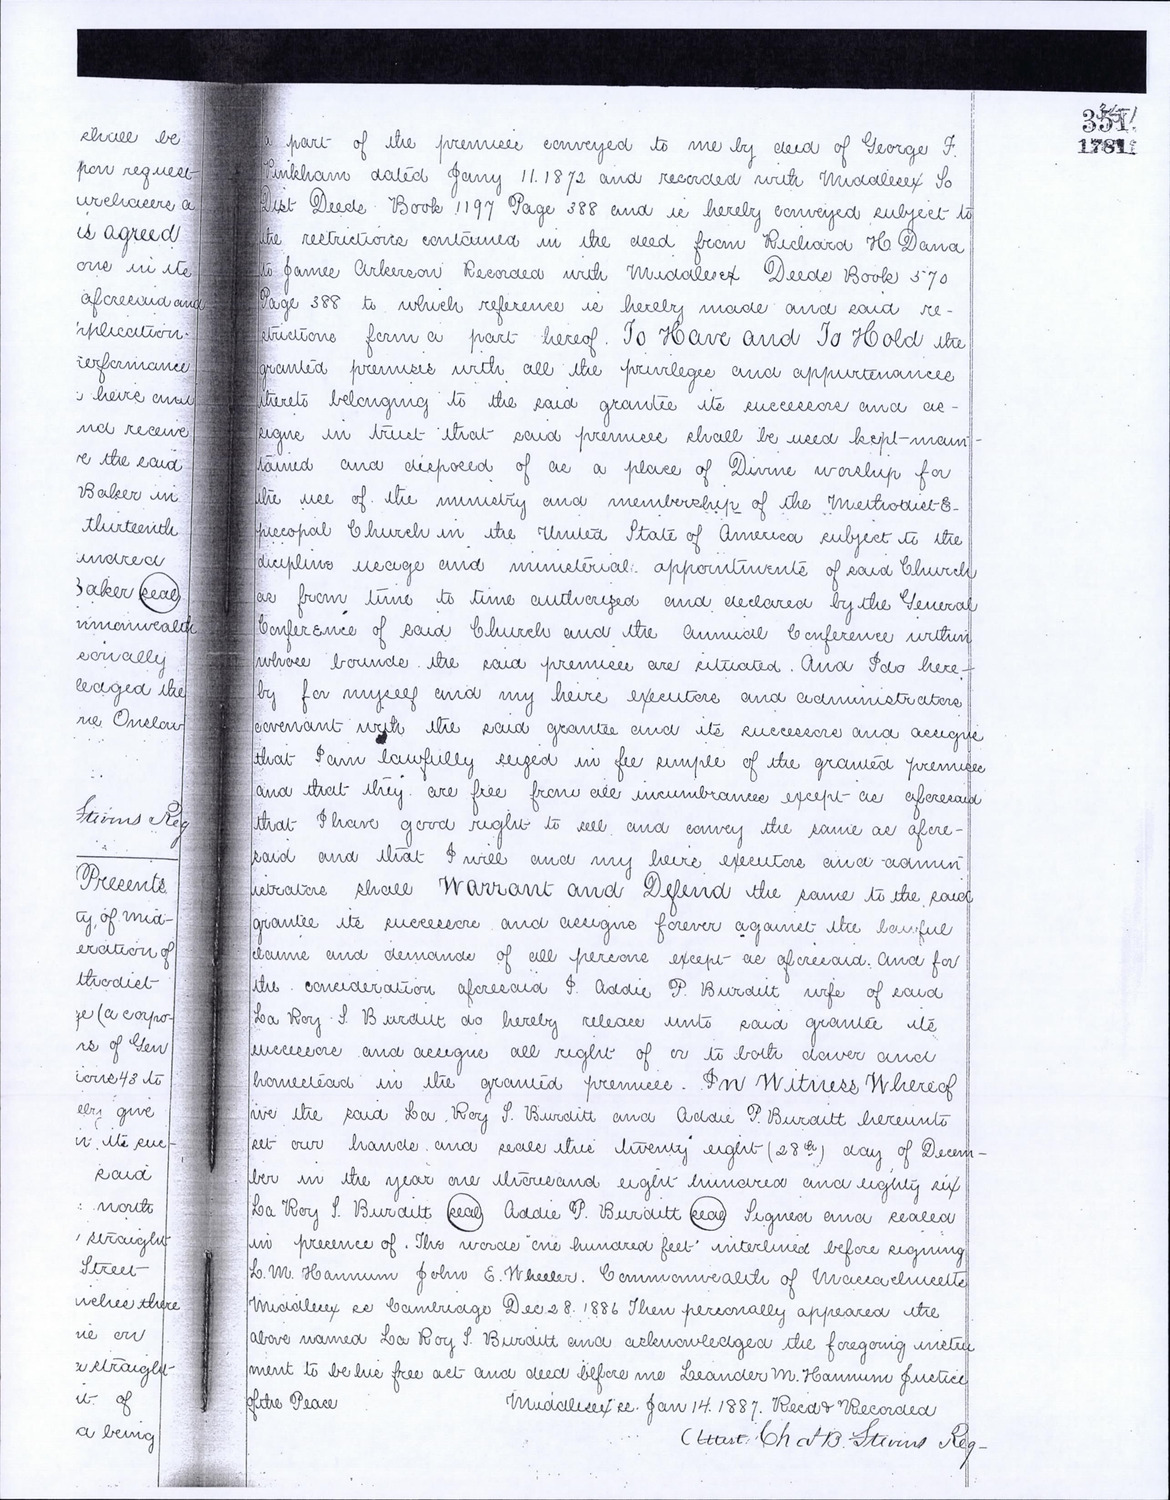 351
1781
shall be
pon request
urchasers a
is agreed
one in its
aforesaid and
pplication
erformance
heirs and
nd receive
re the said
Baker in
thirteenth
undred
Baker seal
mmonwealth
sonally
ledged the
me Onslow
Stevens Reg
Presents
ty, of Mid-
eration of
thodist
ge (a corpo-
rs of Gen
ions 43 to
eby give
n its suc-
said
north
straight
Street
nches there
ne on
a straight
it of
a being
a part of the premises conveyed to me by deed of George F.
Pinkham dated Jany 11. 1872 and recorded with Middlesex So
Dist Deeds Book 1197 Page 388 and is hereby conveyed subject to
the restrictions contained in the deed from Richard H Dana
to James Arkerson Recorded with Middlesex Deeds Book 570
Page 388 to which reference is hereby made and said re-
strictions form a part hereof. To Have and To Hold the
granted premises with all the privileges and appurtenances
thereto belonging to the said grantee its successors and as-
signs in trust that said premises shall be used kept-main-
tained and disposed of as a place of Divine worship for
the use of the ministry and membership of the Methodist E-
piscopal Church in the United State of America subject to the
dicipline usage and ministerial appointments of said Church
as from time to time authorized and declared by the General
Conference of said Church and the annual Conference within
whose bounds the said premises are situated. And I do here-
by for myself and my heirs executors and administrators
covenant with the said grantee and its successors and assigns
that I am lawfully seized in fee simple of the granted premises
and that they are free from all incumbrances except as aforesaid
that I have good right to sell and convey the same as afore-
said and that I will and my heirs executors and admin
istrators shall Warrant and Defend the same to the said
grantee its successors and assigns forever against the lawful
claims and demands of all persons except as aforesaid. And for
the consideration aforesaid I. Addie P. Burditt wife of said
La Roy S. Burditt do hereby release unto said grantee its
successors and assigns all right of or to both dower and
homestead in the granted premises. In Witness Whereof
we the said La Roy S. Burditt and Addie P. Burditt hereunto
set our hands and seals this twenty eight (28th) day of Decem-
ber in the year one thousand eight hundred and eighty six
La Roy S. Burditt seal Addie P. Burditt seal Signed and sealed
in presence of. The words "one hundred feet" interlined before signing
L. M. Hannum John E. Wheeler. Commonwealth of Massachusetts
Middlesex ss Cambridge Dec 28. 1886 Then personally appeared the
above named La Roy S. Burditt and acknowledged the foregoing instru
ment to be his free act and deed before me Leander M. Hannum Justice
of the Peace Middlesex ss. Jan 14. 1887. Recd & Recorded
Attest. Chas B. Stevens Reg-